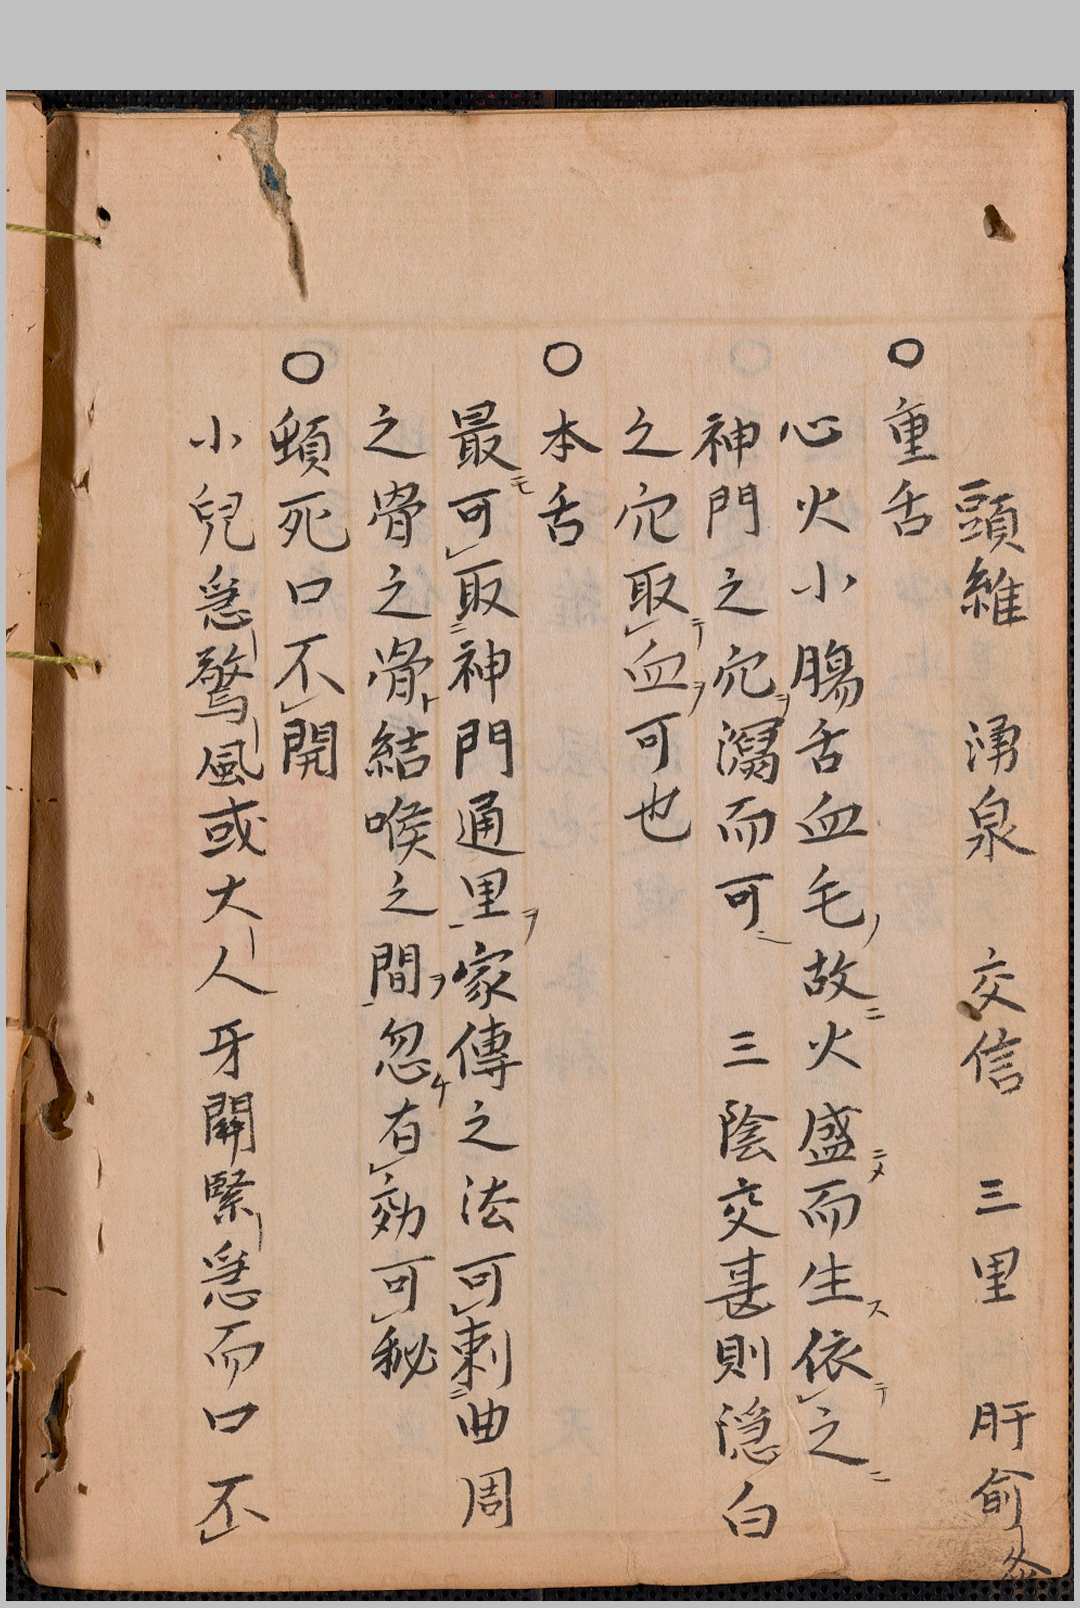 頭維 湧泉 交信 三里 肝俞灸
○重舌
心火小腸舌血毛ノ故ニ火盛ニメ而生ス依テ之ニ
神門之穴ヲ瀉而可ニ 三陰交甚則隠白
之穴取テ血ヲ可也
○本舌
最モ可取ニ神門通里ヲ家傳之法可刺ニ曲周
之骨之滑ト結喉之間ヲ忽ケ有効可秘
○頓死口不開
小兒急驚風或大人牙關緊急而口不